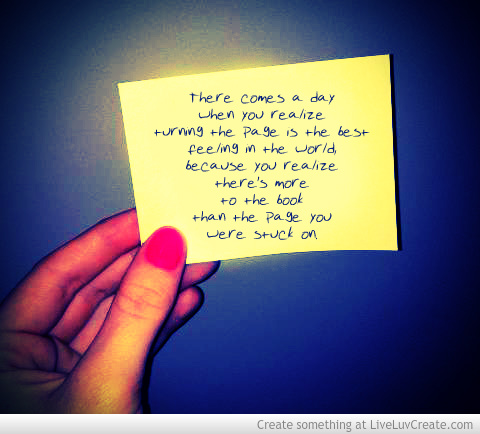 There comes a day
when you realize
turning the page is the best
feeling in the world,
because you realize
there's more
to the book
than the page you
were stuck on
Create something at LiveLuvCreate.com